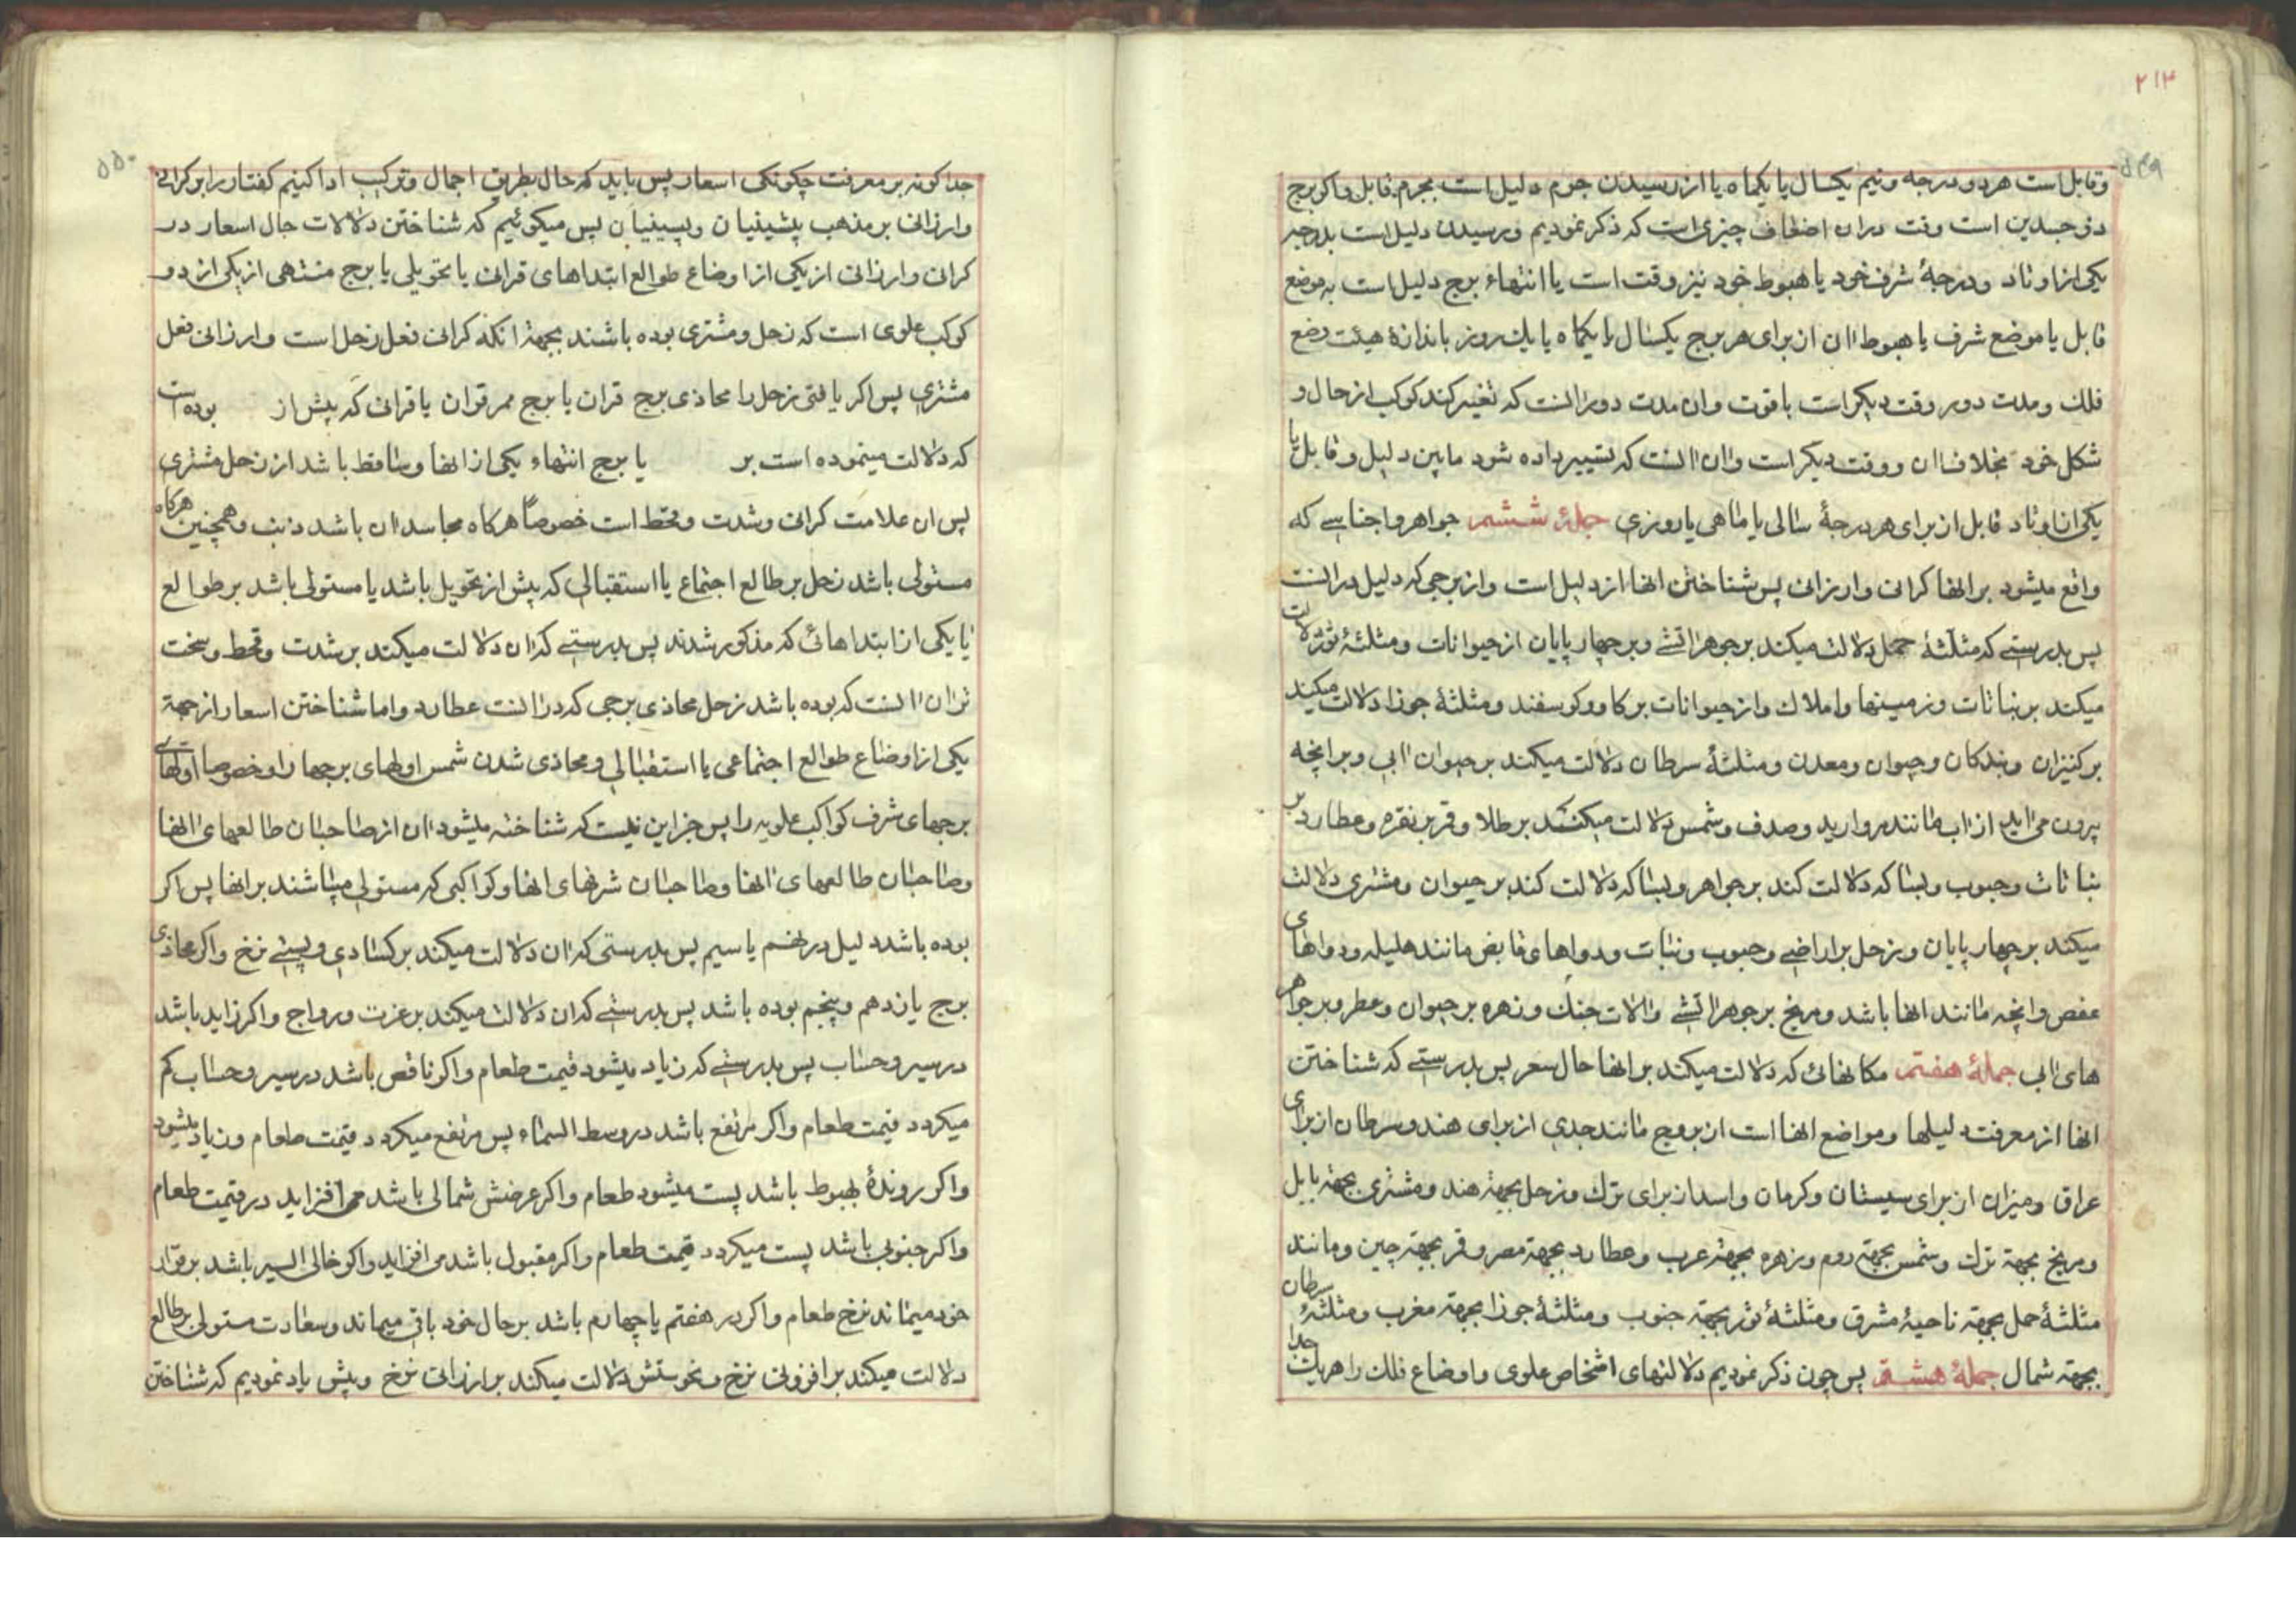 ۲۱۳
۵۴۹
وقابل است هر دو درجه ونیم یکسال یا یکماه یا از رسیدن جرم دلیل است بجرم قابل واکر برج
ذو جسدین است وقت دران اضعاف چیزی است که ذکر نمودیم ورسیدن دلیل است بدرجهٔ
یکی از اوتاد ودرجهٔ شرف خود یا هبوط خود نیز وقت است یا انتهاء برج دلیل است به موضع
قابل یا موضع شرف یا هبوط ان از برای هر برج یکسال یا یکماه یا یک روز باندازهٔ هیئت وضع
فلک ومدت دور وقت دیکر است باقوت وان مدت دور انست که تغییر کند کوکب از حال و
شکل خود بخلاف ان ووقت دیکر است وان انست که تسییر داده شود مابین دلیل وقابل یا
یکی از اوتاد قابل از برای هر درجهٔ سالی یا ماهی یا روزی جملهٔ ششم جواهر واجناسی که
واقع میشود بر انها کرانی وارزانی پس شناختن انها از دلیل است واز برجی که دلیل در انست
پس بدرستی که مثلثهٔ حمل دلالت میکند بر جوهر اتشی وبر چهار پایان از حیوانات ومثلثهٔ ثور دلالت
میکند بر نباتات وزمینها واملاک واز حیوانات بر کاو وکوسفند ومثلثهٔ جوزا دلالت میکند
بر کنیزان وبندکان وحیوان ومعدن ومثلثهٔ سرطان دلالت میکند بر حیوان ابی وبر انچه
بیرون می اید از اب مانند مروارید وصدف وشمس دلالت میکند بر طلا وقمر بر نقره وعطارد بر
نباتات وحبوب وبسا که دلالت کند بر جواهر وبسا که دلالت کند بر حیوان ومشتری دلالت
میکند بر چهار پایان وزحل بر اراضی وحبوب ونبات ودواهای قابض مانند هلیله ودواهای
عفص وانچه مانند انها باشد ومریخ بر جوهر اتشی والات جنک وزهره بر حیوان وعطر وبر جواهر
های ابی جملهٔ هفتم مکانهائی که دلالت میکند بر انها حال سعر پس بدرستی که شناختن
انها از معرفت دلیلها ومواضع انها است از بروج مانند جدی از برای هند وسرطان از برای
عراق ومیزان از برای سیستان وکرمان واسد از برای ترک وزحل بجهة هند ومشتری بجهة بابل
ومریخ بجهة ترک وشمس بجهة روم وزهره بجهة عرب وعطارد بجهة مصر وقمر بجهة چین ومانند
مثلثهٔ حمل بجهة ناحیهٔ مشرق ومثلثهٔ ثور بجهة جنوب ومثلثهٔ جوزا بجهة مغرب ومثلثهٔ سرطان
بجهة شمال جملهٔ هشتم پس چون ذکر نمودیم دلالتهای اشخاص علوی واوضاع فلک را هریک جدا
۵۵۰
جدا کونه بر معرفت چکونکی اسعار پس باید که حال بطریق اجمال وترکیب ادا کنیم کفتار را بر کرانی
وارزانی بر مذهب پیشینیان وپسینیان پس میکوئیم که شناختن دلالات حال اسعار در
کرانی وارزانی از یکی از اوضاع طوالع ابتداهای قرانی یا تحویلی یا برج منتهی از یکی از دو
کوکب علوی است که زحل ومشتری بوده باشند بجهة انکه کرانی فعل زحل است وارزانی فعل
مشتری پس اکر یافتی زحل را محاذی برج قران یا برج ممر قران یا قرانی که پیش از بوده است
که دلالت مینموده است بر یا برج انتهاء یکی از انها وساقط باشد از زحل مشتری
پس ان علامت کرانی وشدت وقحط است خصوصاً هرکاه مجاسد ان باشد ذنب وهمچنین هرکاه
مستولی باشد زحل بر طالع اجتماع یا استقبالی که پیش از تحویل باشد یا مستولی باشد بر طوالع
یا یکی از ابتداهائی که مذکور شدند پس بدرستی که ان دلالت میکند بر شدت وقحط وسخت
تر ان انست که بوده باشد زحل محاذی برجی که در انست عطارد واما شناختن اسعار از جهة
یکی از اوضاع طوالع اجتماعی یا استقبالی ومحاذی شدن شمس اولهای برجها را وخصوصا اولهای
برجهای شرف کواکب علویه را پس جز این نیست که شناخته میشود ان از صاحبان طالعهای انها
وصاحبان طالعهای انها وصاحبان شرفهای انها وکواکبی که مستولی میباشند بر انها پس اکر
بوده باشد دلیل در نهم یا سیم پس بدرستی که ان دلالت میکند بر کسادی وپستی نرخ واکر محاذی
برج یازدهم وپنجم بوده باشد پس بدرستی که ان دلالت میکند بر عزت ورواج واکر زاید باشد
در سیر وحساب پس بدرستی که زیاد میشود قیمت طعام واکر ناقص باشد در سیر وحساب کم
میکردد قیمت طعام واکر مرتفع باشد در وسط السماء پس مرتفع میکردد قیمت طعام وزیاد میشود
واکر روندهٔ بهبوط باشد پست میشود طعام واکر عرضش شمالی باشد می افزاید در قیمت طعام
واکر جنوبی باشد پست میکردد قیمت طعام واکر مقبول باشد می افزاید واکر خالی السیر باشد بر قرار
خود میماند نرخ طعام واکر در هفتم یا چهارم باشد بر حال خود باقی میماند وسعادت مستولی بر طالع
دلالت میکند بر افزونی نرخ ونحوستش دلالت میکند بر ارزانی نرخ وپیش یاد نمودیم که شناختن